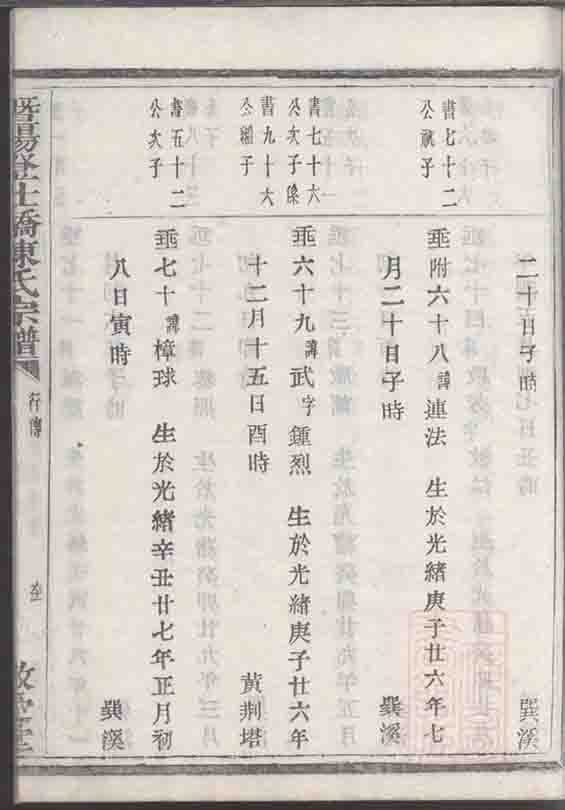 二十日子時 巽溪
書七十二
公嗣子
垂附六十八諱連法 生於光緒庚子廿六年七
月二十日子時 巽溪
書七十六
公次子係
書九十六
公繼子
垂六十九諱武字鍾烈 生於光緒庚子廿六年
十二月十五日酉時 黃荆塔
書五十二
公次子
垂七十諱樟球 生於光緒辛丑廿七年正月初
八日寅時 巽溪
暨陽 橋陳氏宗譜 行傳